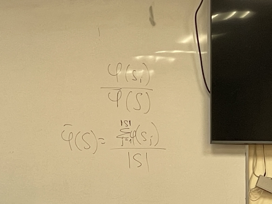 φ(sᵢ)
/
φ̄(S)
φ̄(S) = ∑ⱼ₌₁^|S| φ(sⱼ) / |S|